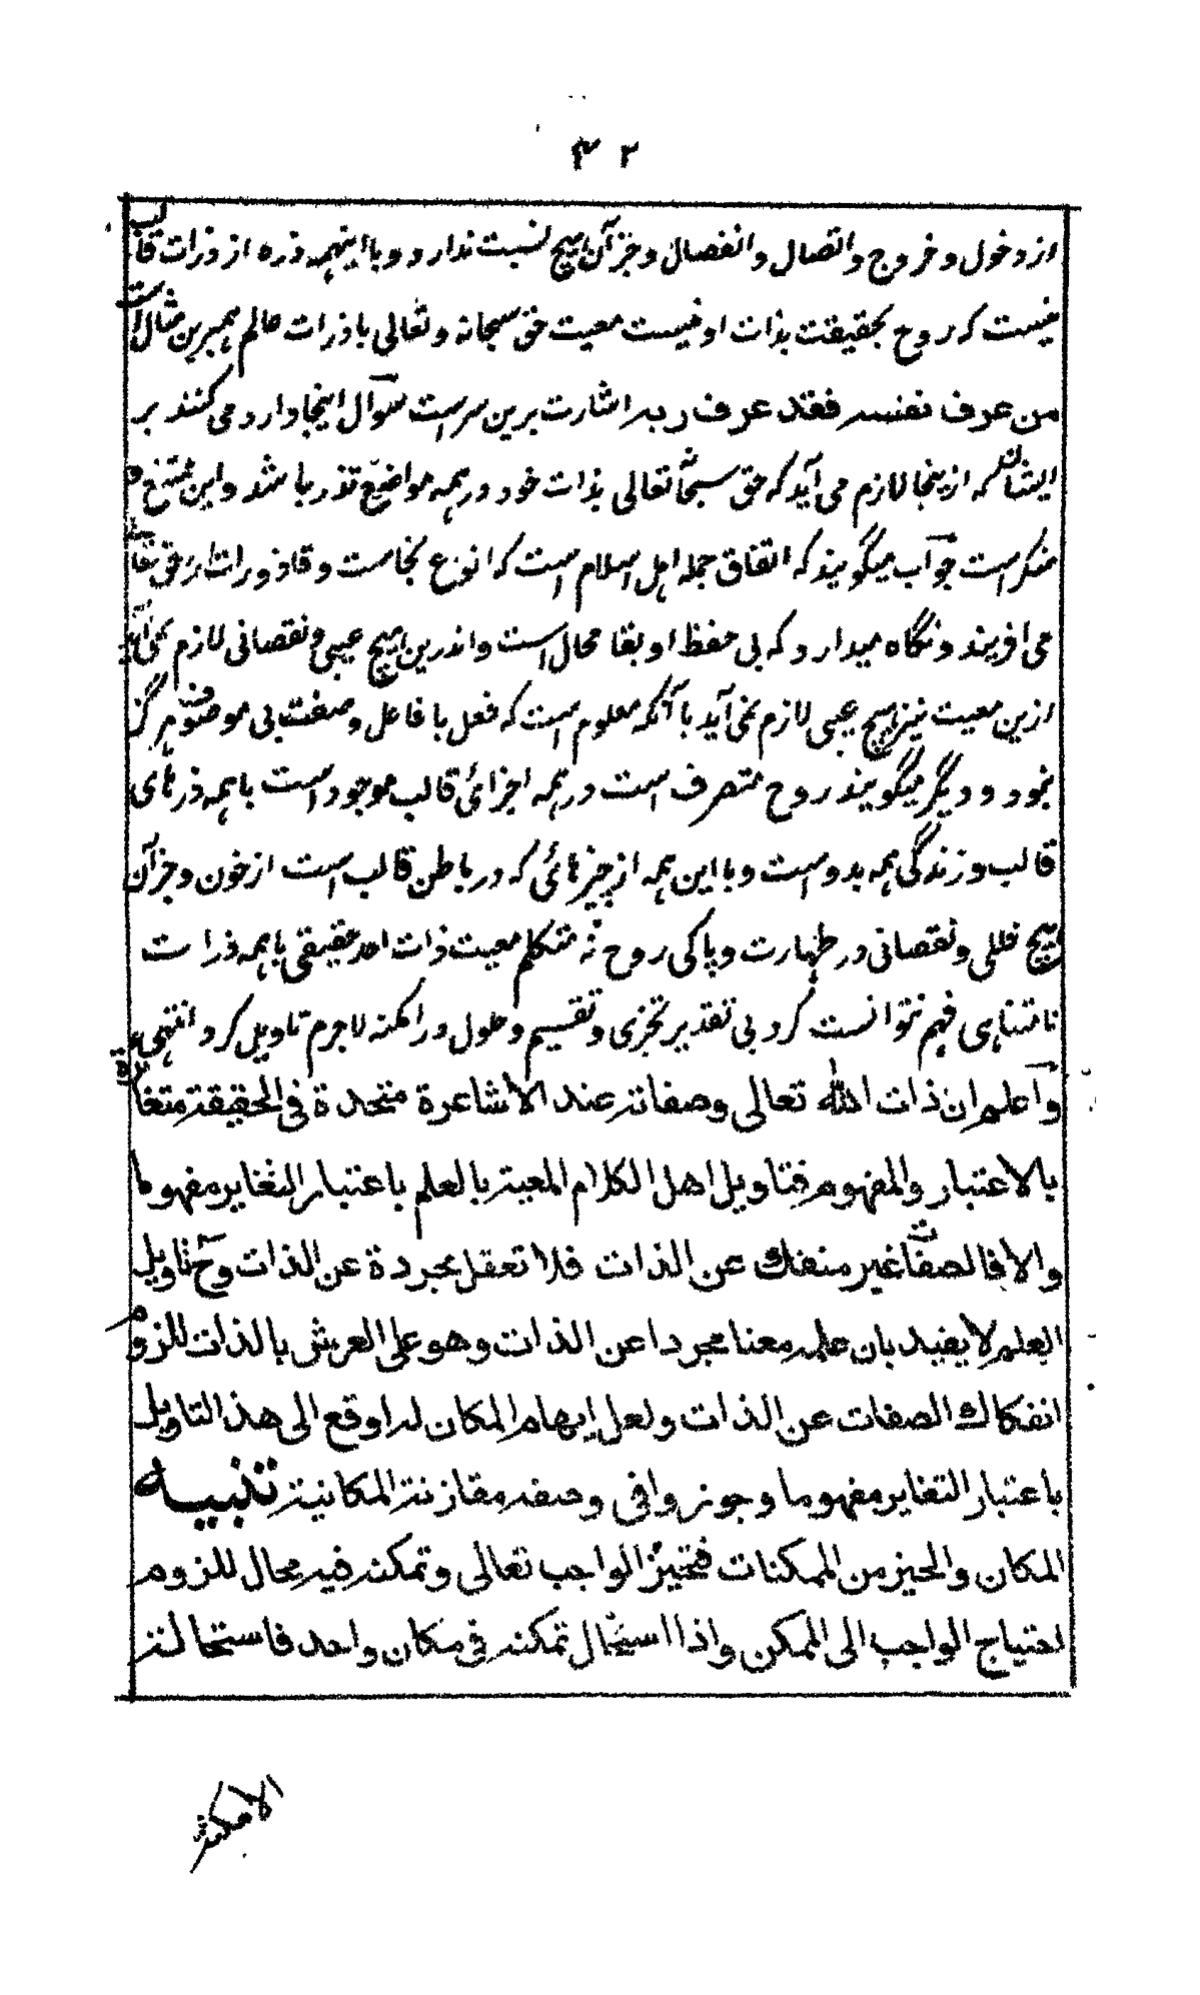 ۴۲
از دخول و خروج و اتصال و انفصال و جز آن هیچ نسبت ندارد و با اینهمه ذره از ذرات قالب
نیست که روح بحقیقت بذات او نیست معیت حق سبحانه و تعالی با ذرات عالم همبرین مثال است
من عرف نفسه فقد عرف ربه اشارت برین سرست سوآل اینجا وارد می کنند بر
ایشان که ازینجا لازم می آید که حق سبحانه تعالی بذات خود در همه مواضع قذر باشد و این ممتنع و
منکر است جوآب میگویند که اتفاق جمله اهل اسلام است که انوع نجاست و قاذورات را حق تعالی
می آفریند و نگاه میدارد که بی حفظ او بقا محال است و اندرین هیچ عیبی و نقصانی لازم نمی آید
ازین معیت نیز هیچ عیبی لازم نمی آید با آنکه معلوم است که فعل با فاعل و صفت بی موصوف هرگز
نبود و دیگر میگویند روح متصرف است در همه اجزائ قالب موجود است با همه ذرهای
قالب و زندگی همه بدوست و با این همه از چیزهائی که در باطن قالب است از خون و جز آن
هیچ خللی و نقصانی در طهارت و پاکی روح نه متکلم معیت ذات احد حقیقی با همه ذرات
نامتناهی فهم نتوانست کرد بی تقدیر تجزی و تقسیم و حلول در امکنه لاجرم تاویل کرد انتهی
وآعلم ان ذات الله تعالی وصفاته عند الاشاعرة متحدة فی الحقیقة متغایرة
بالاعتبار والمفهوم فتاویل اهل الکلام المعیة بالعلم باعتبار التغایر مفهوما
والا فالصفات غیر منفک عن الذات فلا تعقل مجردة عن الذات وح تاویل
العلم لا یفید بان علمه معنا مجردا عن الذات وهو علی العرش بالذات للزوم
انفکاک الصفات عن الذات ولعل ایهام المکان لدا وقع الی هذا التاویل
باعتبار التغایر مفهوما وجوز وافی وصفه مقارنة المکانیة تنبیه
المکان والحیز من الممکنات فتحیز الواجب تعالی وتمکنه فیه محال للزوم
احتیاج الواجب الی الممکن واذا استحال تمکنه فی مکان واحد فاستحالته
الامکنة